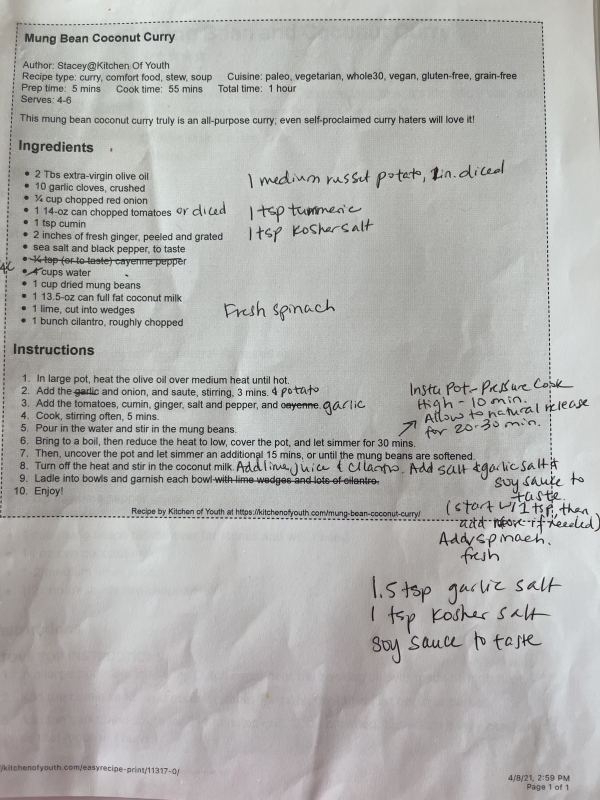 Mung Bean Coconut Curry
Author: Stacey@Kitchen Of Youth
Recipe type: curry, comfort food, stew, soup Cuisine: paleo, vegetarian, whole30, vegan, gluten-free, grain-free
Prep time: 5 mins Cook time: 55 mins Total time: 1 hour
Serves: 4-6
This mung bean coconut curry truly is an all-purpose curry; even self-proclaimed curry haters will love it!
Ingredients
• 2 Tbs extra-virgin olive oil
1 medium russet potato, 1in. diced
• 10 garlic cloves, crushed
• ¾ cup chopped red onion
• 1 14-oz can chopped tomatoes or diced
1 tsp tummeric
• 1 tsp cumin
1 tsp Kosher salt
• 2 inches of fresh ginger, peeled and grated
• sea salt and black pepper, to taste
• ¼ tsp (or to taste) cayenne pepper
• 4 cups water
• 1 cup dried mung beans
• 1 13.5-oz can full fat coconut milk
• 1 lime, cut into wedges
Fresh spinach
• 1 bunch cilantro, roughly chopped
Instructions
1. In large pot, heat the olive oil over medium heat until hot.
2. Add the garlic and onion, and saute, stirring, 3 mins. & potato
3. Add the tomatoes, cumin, ginger, salt and pepper, and cayenne. garlic
4. Cook, stirring often, 5 mins.
5. Pour in the water and stir in the mung beans.
6. Bring to a boil, then reduce the heat to low, cover the pot, and let simmer for 30 mins.
7. Then, uncover the pot and let simmer an additional 15 mins, or until the mung beans are softened.
8. Turn off the heat and stir in the coconut milk. Add lime juice & cilantro. Add salt & garlic salt &
9. Ladle into bowls and garnish each bowl with lime wedges and lots of cilantro.
10. Enjoy!
Insta Pot - Pressure Cook
High - 10 min.
Allow to natural release
for 20-30 min.
soy sauce to
taste.
(start w/ 1 tsp, then
add more if needed)
Add spinach.
fresh
Recipe by Kitchen of Youth at https://kitchenofyouth.com/mung-bean-coconut-curry/
1.5 tsp garlic salt
1 tsp Kosher salt
soy sauce to taste
/kitchenofyouth.com/easyrecipe-print/11317-0/
4/8/21, 2:59 PM
Page 1 of 1